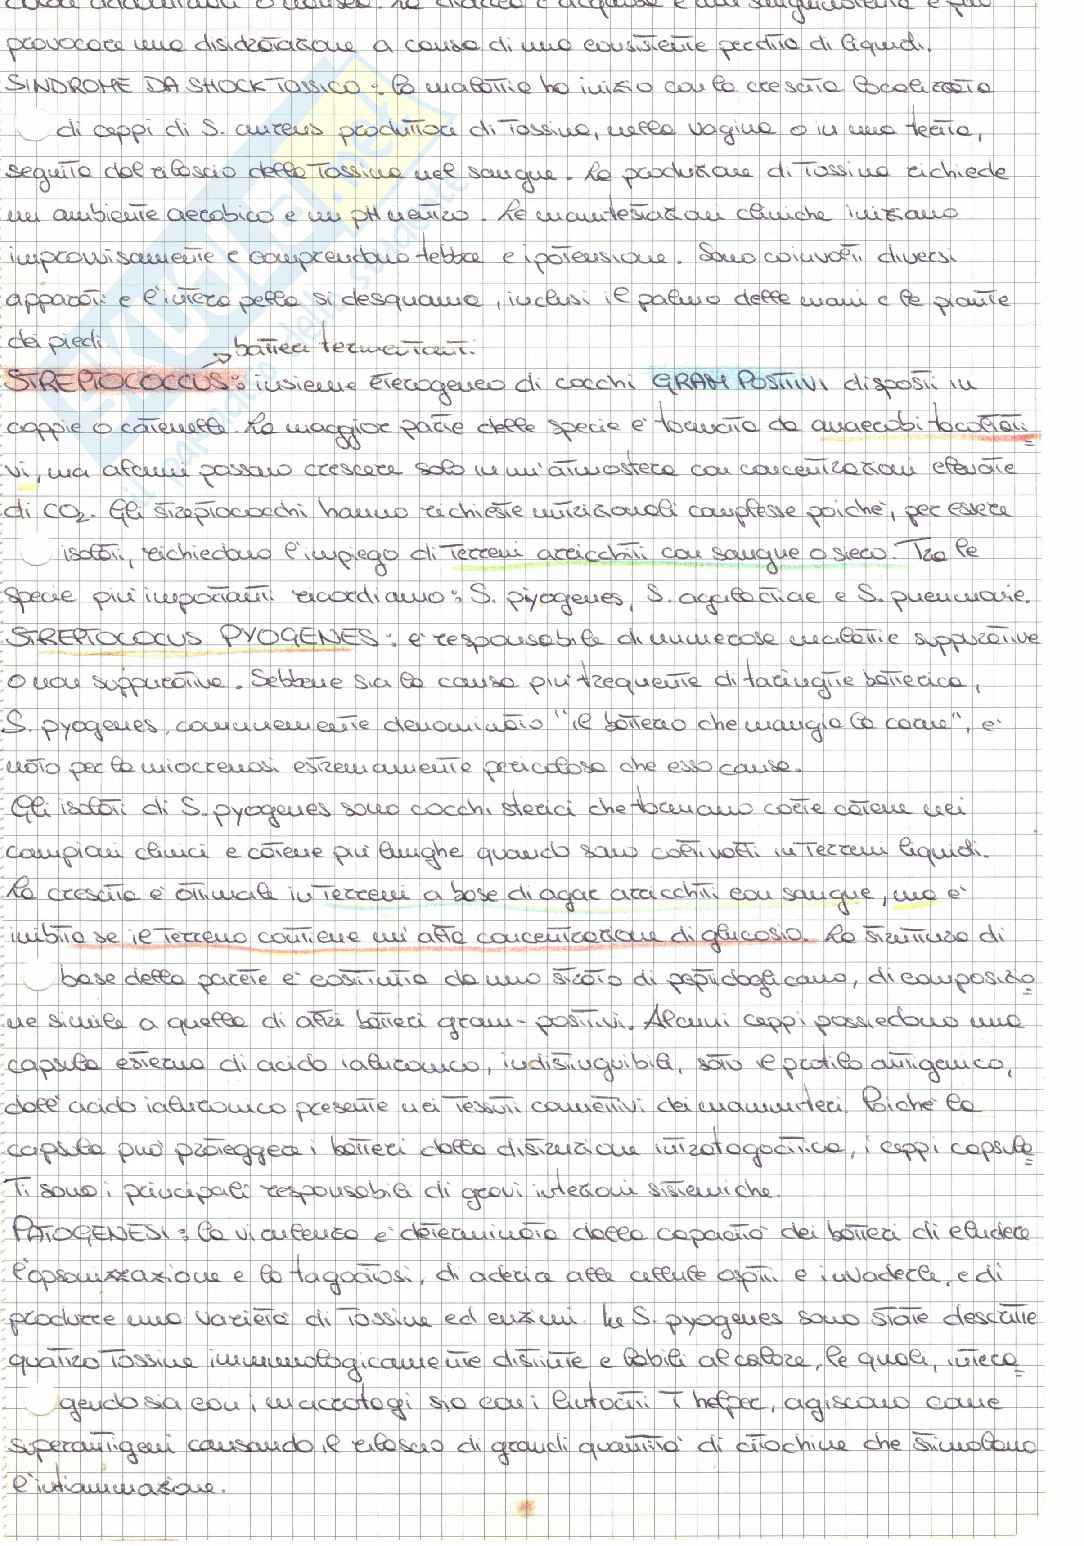 provocare una disidratazione a causa di una consistente perdita di liquidi.
SINDROME DA SHOCK TOSSICO: la malattia ha inizio con la crescita localizzata
di ceppi di S. aureus produttori di tossina, nella vagina o in una ferita,
seguita dal rilascio della tossina nel sangue. La produzione di tossina richiede
un ambiente aerobico e un pH neutro. Le manifestazioni cliniche iniziano
improvvisamente e comprendono febbre e ipotensione. Sono coinvolti diversi
apparati e l'intera pelle si desquama, inclusi il palmo delle mani e le piante
dei piedi.
batteri fermentanti.
STREPTOCOCCUS: insieme eterogeneo di cocchi GRAM POSITIVI disposti in
coppie o catenelle. La maggior parte delle specie e' formata da anaerobi facoltati
vi, ma alcuni possono crescere solo in un'atmosfera con concentrazioni elevate
di CO2. Gli streptococchi hanno richieste nutrizionali complesse poichè, per essere
isolati, richiedono l'impiego di terreni arricchiti con sangue o siero. Tra le
specie piu' importanti ricordiamo: S. piyogenes, S. agalactiae e S. pneumonie.
STREPTOCOCUS PYOGENES: e' responsabile di numerose malattie suppurative
o non suppurative. Sebbene sia la causa piu' frequente di faringite batterica,
S. pyogenes, comunemente denominato "il batterio che mangia la carne", e'
noto per la mionecrosi estremamente pericolosa che esso causa.
Gli isolati di S. pyogenes sono cocchi sferici che formano corte catene nei
campioni clinici e catene piu' lunghe quando sono coltivati in terreni liquidi.
La crescita e' ottimale in terreni a base di agar arricchiti con sangue, ma e'
inibita se il terreno contiene un'alta concentrazione di glucosio. La struttura di
base della parete e' costituita da uno strato di peptidoglicano, di composizio
ne simile a quella di altri batteri gram-positivi. Alcuni ceppi possiedono una
capsula esterna di acido ialuronico, indistinguibile, sotto il profilo antigenico,
dall'acido ialuronico presente nei tessuti connettivi dei mammiferi. Poichè la
capsula puo' proteggere i batteri dalla distruzione intrafagocitica, i ceppi capsula
ti sono i principali responsabili di gravi infezioni sistemiche.
PATOGENESI: la virulenza e' determinata dalla capacita' dei batteri di eludere
l'opsonizzazione e la fagocitosi, di aderire alle cellule ospiti e invaderle, e di
produrre una varieta' di tossine ed enzimi. In S. pyogenes sono state descritte
quattro tossine immunologicamente distinte e labili al calore, le quali, intera
gendo sia con i macrofagi sia con i linfociti T helper, agiscono come
superantigeni causando il rilascio di grandi quantita' di citochine che stimolano
l'infiammazione.